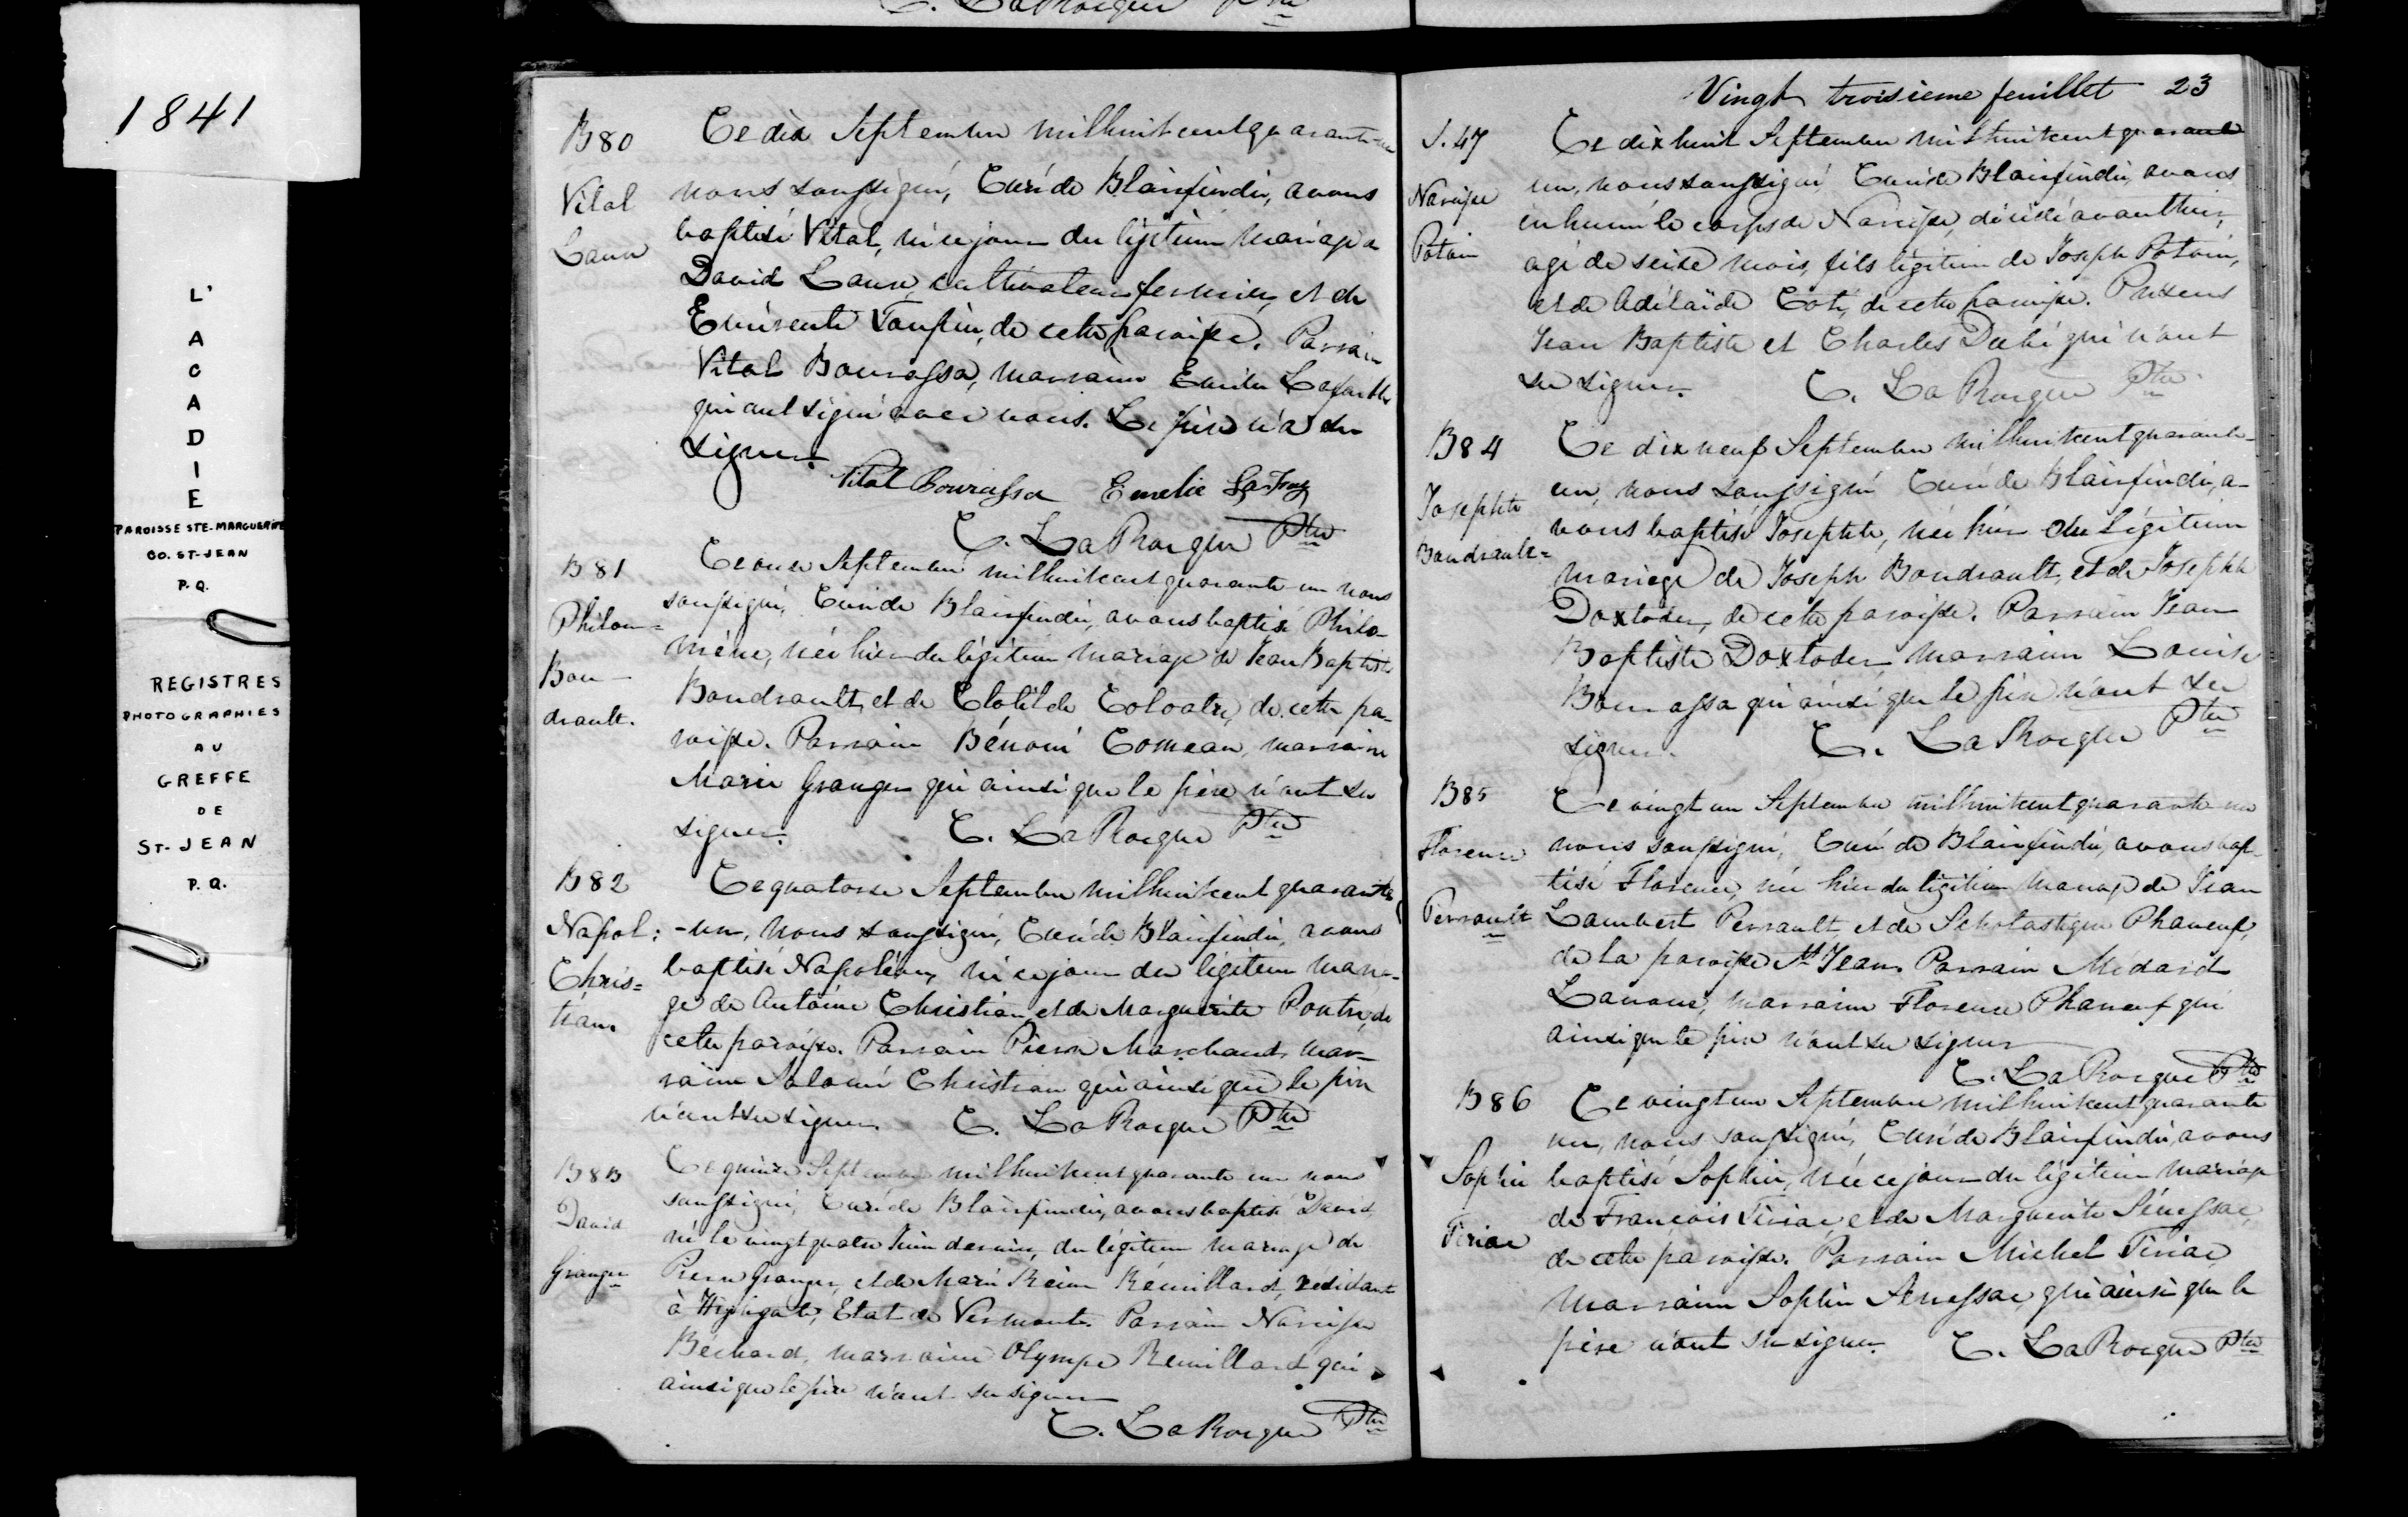 1841
L'
A
C
A
D
I
E
PAROISSE STE-MARGUERITE
CO. ST-JEAN
P.Q.
REGISTRES
PHOTOGRAPHIES
AU
GREFFE
DE
ST-JEAN
P.Q.
C. LaRocque Ptre
B80
Vital
Ce dix Septembre milhuitcentquarante-un
nous soussigné, Curé de Blairfindie, avons
baptisé Vital, né ce jour du légitime mariage de
David cultivateur fermier, et de
Toupin, de cette paroisse. Parrain
Vital Bourassa, marraine Emilie
qui ont signé avec nous. Le père n'a su
signer.
Vital Bourassa Emelie
C. LaRocque Ptre
B81
Philom=
Bou-
drault.
Ce onze Septembre milhuitcentquarante un nous
soussigné, Curé de Blairfindie, avons baptisé Philo-
mène, née hier du légitime mariage de Jean Baptiste
Boudrault, et de Clotilde Coloatre, de cette pa-
roisse. Parrain Bénoni Comeau, marraine
Marie Granger qui ainsi que le père n'ont su
signer. C. LaRocque Ptre
B82
Napol:
Chris=
tian.
Ce quatorze Septembre milhuitcent quarante
-un, nous soussigné, Curé de Blairfindie, avons
baptisé Napoléon, né ce jour du légitime maria-
ge de Antoine Christian, et de Marguerite Poutre, de
cette paroisse. Parrain Pierre Marchand, mar-
raine Salomé Christian qui ainsi que le père
n'ont su signer. C. LaRocque Ptre
B83
David
Granger
Ce quinze Septembre milhuitcentquarante un nous
soussigné, Curé de Blairfindie, avons baptisé David,
né le vingt quatre Juin dernier, du légitime mariage de
Pierre Granger, et de Marie Reine Rémillard, residant
à Highgate, Etat de Vermont. Parrain Narcisse
Béchard, marraine Olympe Remillard qui
ainsi que le père n'ont su signer
C. LaRocque Ptre
Vingt troisieme feuillet 23
S. 47
Narcisse
Potvin
Ce dix huit Septembre milhuitcentquarante
un, nous soussigné Curé de Blairfindie, avons
inhumé le corps de Narcisse, décédé avanthier,
agé de seize mois, fils légitime de Joseph Potvin,
et de Adélaïde Coté, de cette paroisse. Présens
Jean Baptiste et Charles Dubé qui n'ont
su signer. C. LaRocque Ptre
B84
Josephte
Boudrault=
Ce dix neuf Septembre milhuitcentquarante-
un, nous soussigné Curé de Blairfindie, a-
vons baptisé Josephte, née hier du légitime
mariage de Joseph Boudrault, et de Josephte
Doxtoder, de cette paroisse. Parrain Jean
Baptiste Doxtoder, marraine Louise
Bourassa qui ainsi que le père n'ont su
signer. C. LaRocque Ptre
B85
Florence
Perrault
Ce vingt un Septembre milhuitcentquarante un
nous soussigné, Curé de Blairfindie, avons bap-
tisé Florence, née hier du légitime mariage de Jean
Lambert Perrault, et de Scholastique Phaneuf,
de la paroisse St Jean. Parrain Médard
Lanoue, marraine Florence Phaneuf qui
ainsi que le père n'ont su signer
C. LaRocque Ptre
B86
Sophie
Tiriac
Ce vingt un Septembre milhuitcentquarante
un, nous soussigné, Curé de Blairfindie, avons
baptisé Sophie, née ce jour du légitime mariage
de François Tiriac, et de Marguerite Sénessac,
de cette paroisse. Parrain Michel Tiriac,
marraine Sophie Senessac, qui ainsi que le
père n'ont su signer. C. LaRocque Ptre